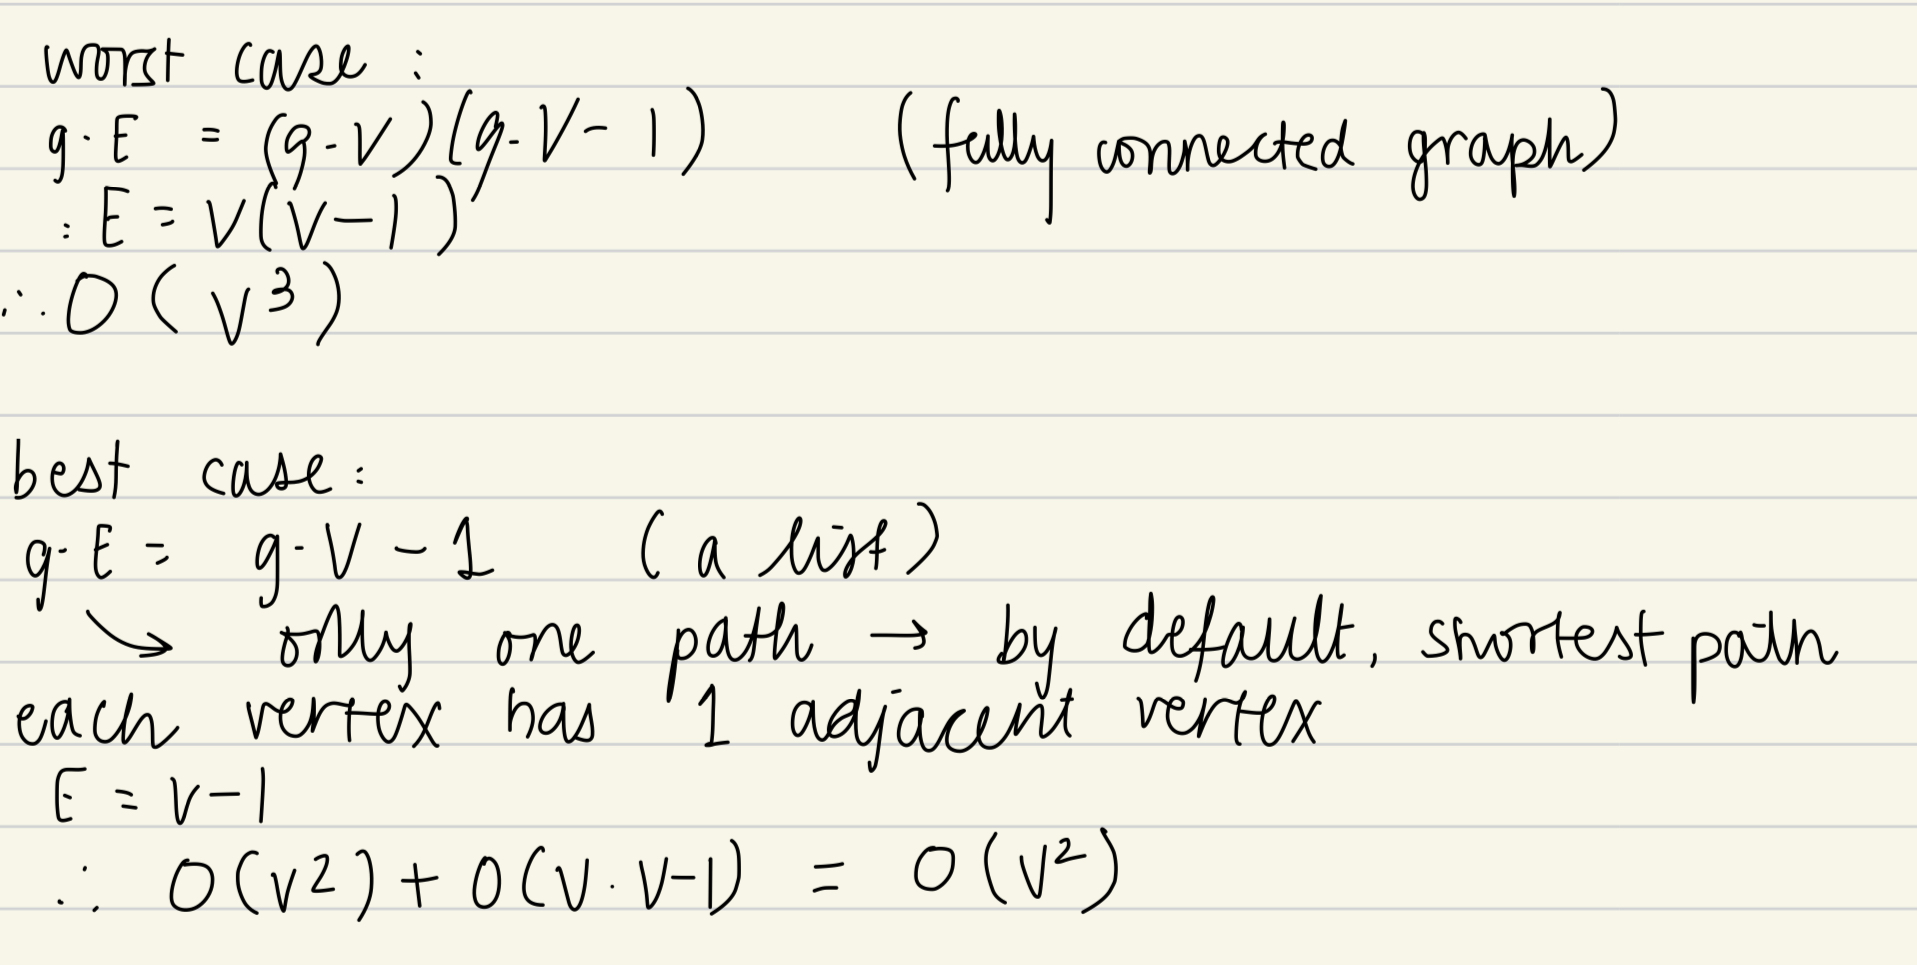 worst case :
g.E = (g.V)(g.V-1) (fully connected graph)
: E = V(V-1)
∴ O(V³)
best case:
g.E = g.V - 1 (a list)
↘ only one path → by default, shortest path
each vertex has 1 adjacent vertex
E = V-1
∴ O(V²) + O(V.V-1) = O(V²)